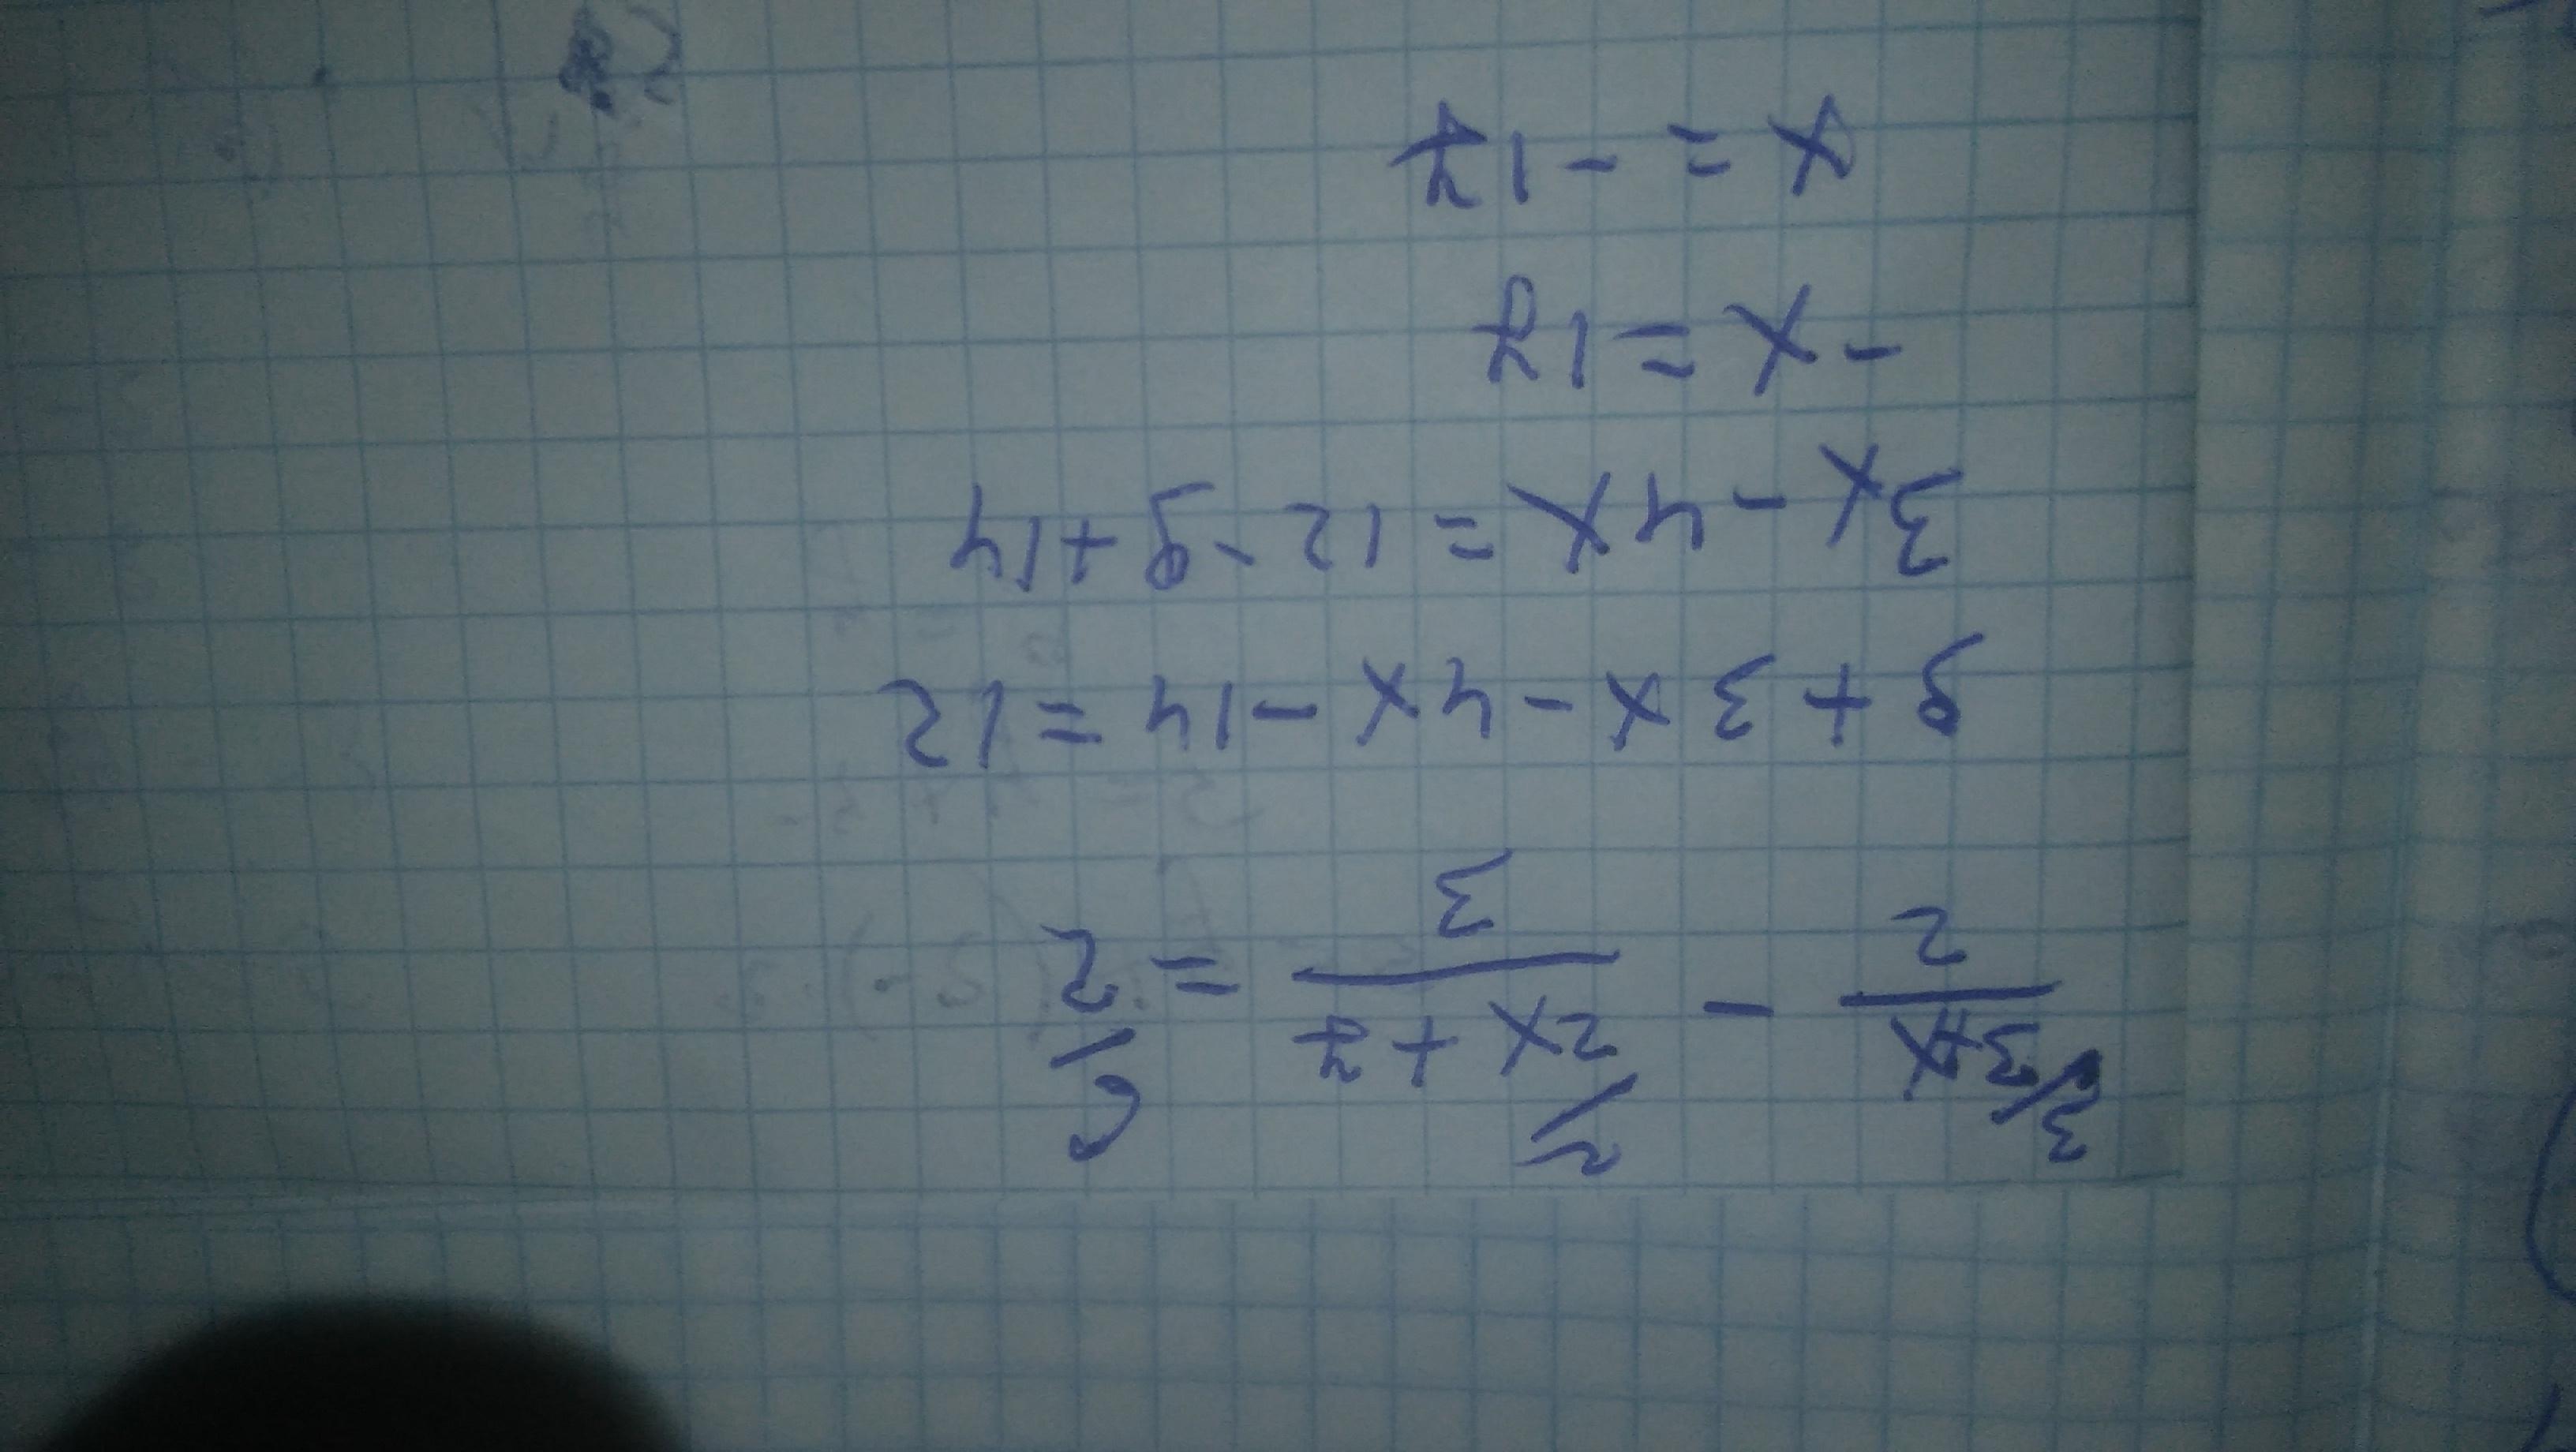 3/ (3+x)/2 - 2/ (2x+7)/3 = 6/ 2
9+3x-4x-14=12
3x-4x=12-9+14
-x=17
x=-17